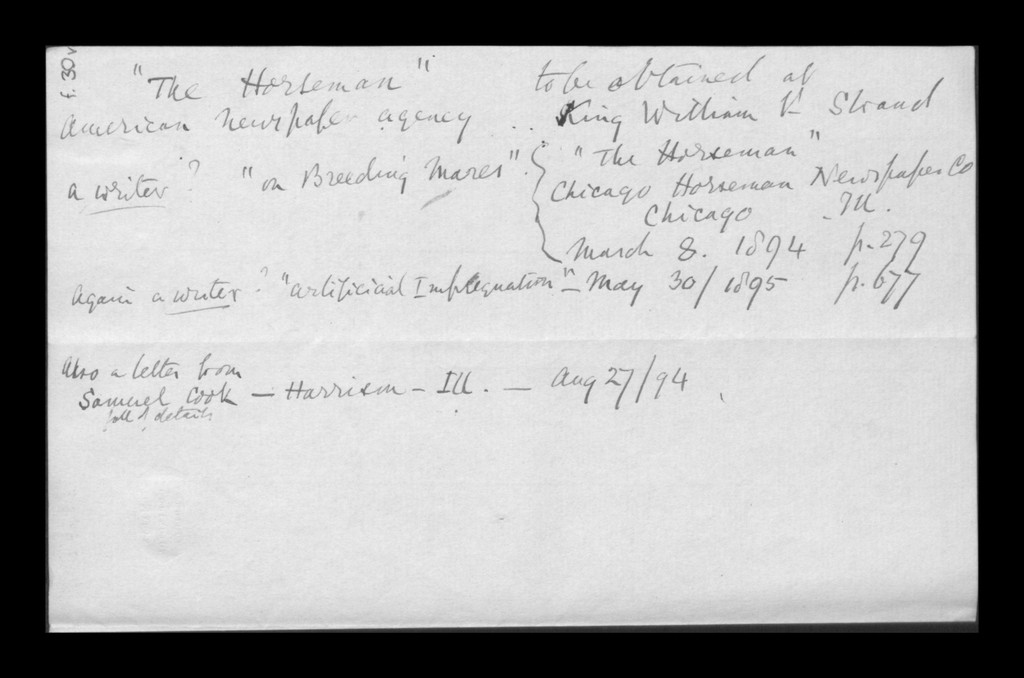 f.30v
"The Horseman" to be obtained at
American newspaper agency .. King William V Strand
a writer? "on Breeding Mares". { "The Horseman"
Chicago Horseman Newspaper Co
Chicago Ill.
March 8. 1894 p. 279
Again a writer? "artificial Impregnation" — May 30/1895 p. 677
Also a letter from
Samuel Cook — Harrison — Ill. — Aug 27/94
full of details